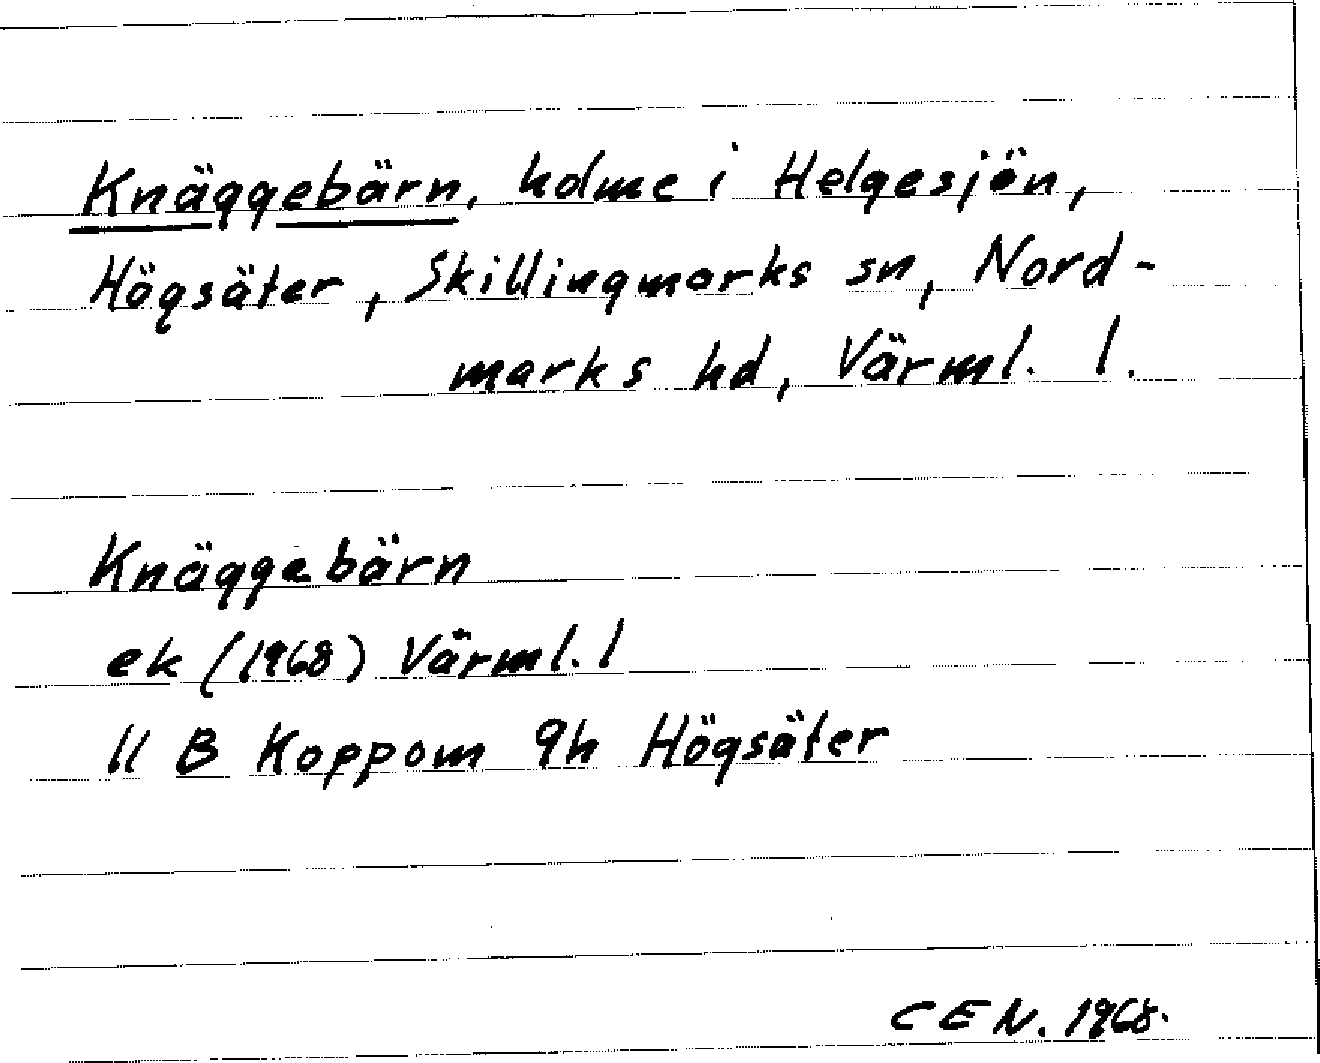 Knäggebärn, holme i Helgesjön,
Högsäter, Skillingmarks sn, Nord-
marks hd, Värml. l.
Knäggebärn
ek (1968) Värml. l
11 B Koppom 9h Högsäter
CEN. 1968.